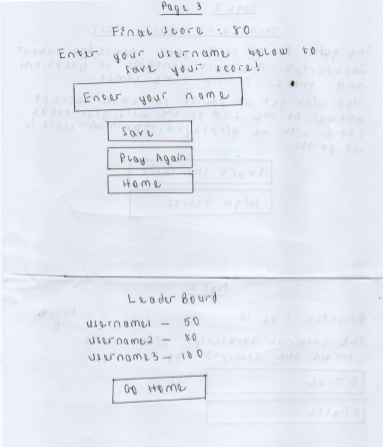 Page 3
Final score : 80
Enter your username below to
save your score!
Enter your name
Save
Play Again
Home
Leader Board
username1 - 50
username2 - 80
username3 - 100
Go Home